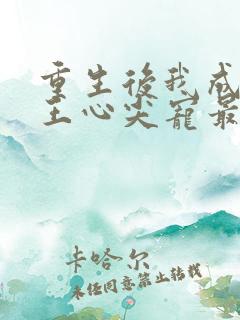 重生後我成
王心尖寵最
卡哈尔
未经同意禁止转载